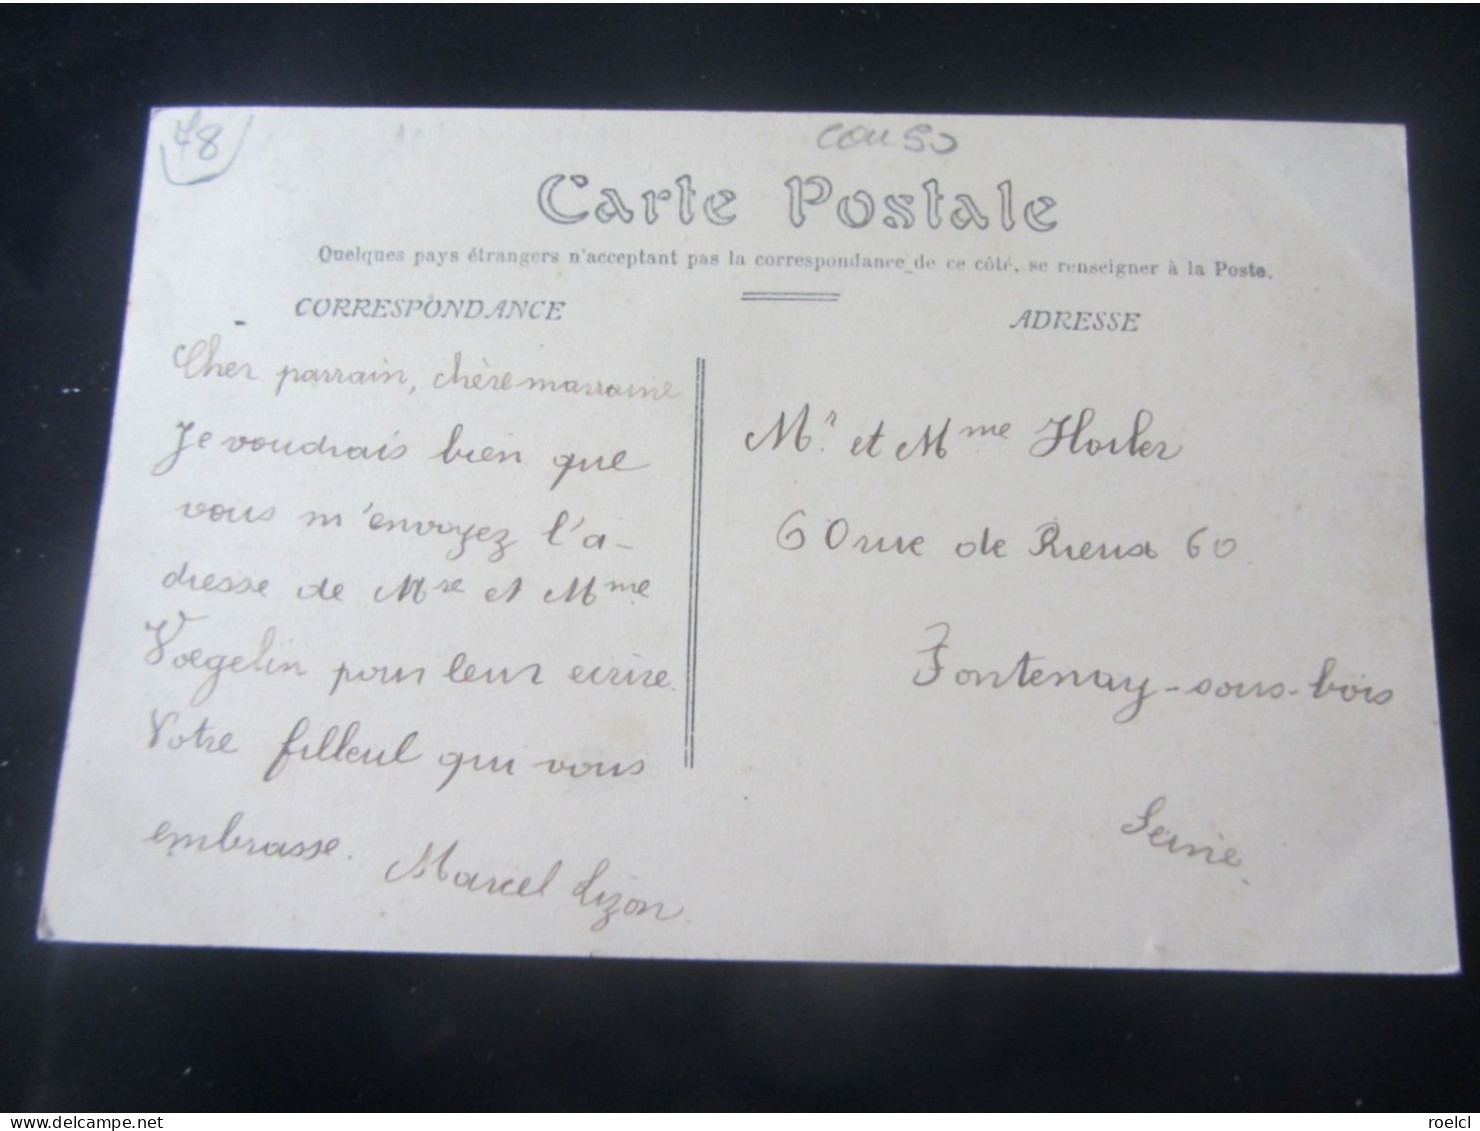 78
Carte Postale
Quelques pays étrangers n'acceptant pas la correspondance de ce côté, se renseigner à la Poste.
CORRESPONDANCE
ADRESSE
Cher parrain, chère marraine
Je voudrais bien que
vous m'envoyez l'a-
dresse de Mre et Mme
Voegelin pour leur ecrire.
Votre filleul qui vous
embrasse. Marcel Lizon
Mr. et Mme
60 rue de Rieux 60
Fontenay-sous-bois
Seine.
delcampe.net
roelcl